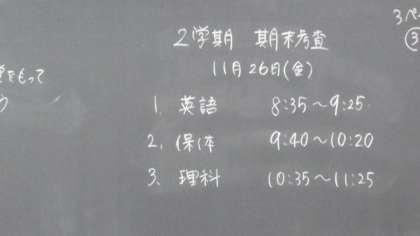 2学期 期末考査
11月26日(金)
1. 英語 8:35〜9:25
2. 保体 9:40〜10:20
3. 理科 10:35〜11:25
をもって
3ペ
③